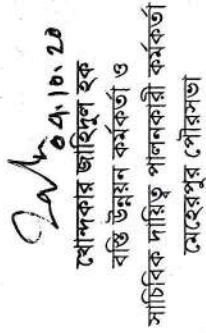 ০৭.১০.২০
খোন্দকার জাহিদুল হক
বস্তি উন্নয়ন কর্মকর্তা ও
সাচিবিক দায়িত্ব পালনকারী কর্মকর্তা
মেহেরপুর পৌরসভা